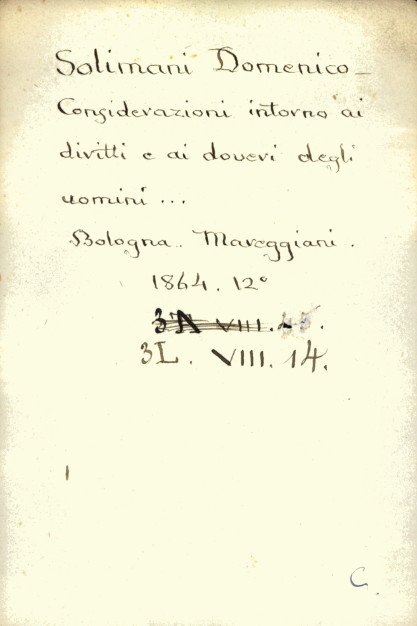 Solimani Domenico_
Considerazioni intorno ai
diritti e ai doveri degli
uomini ...
Bologna.. Mareggiani.
1864. 12°
3 A VIII.
3L. VIII. 14.
C.